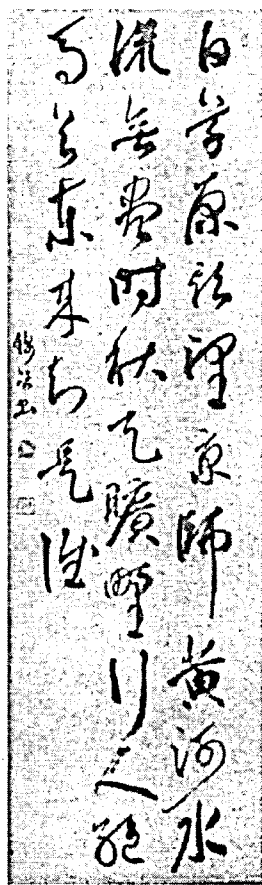 白草原頭望京師黃河水
流無盡時秋天曠野行人絕
馬首東來知是誰
書